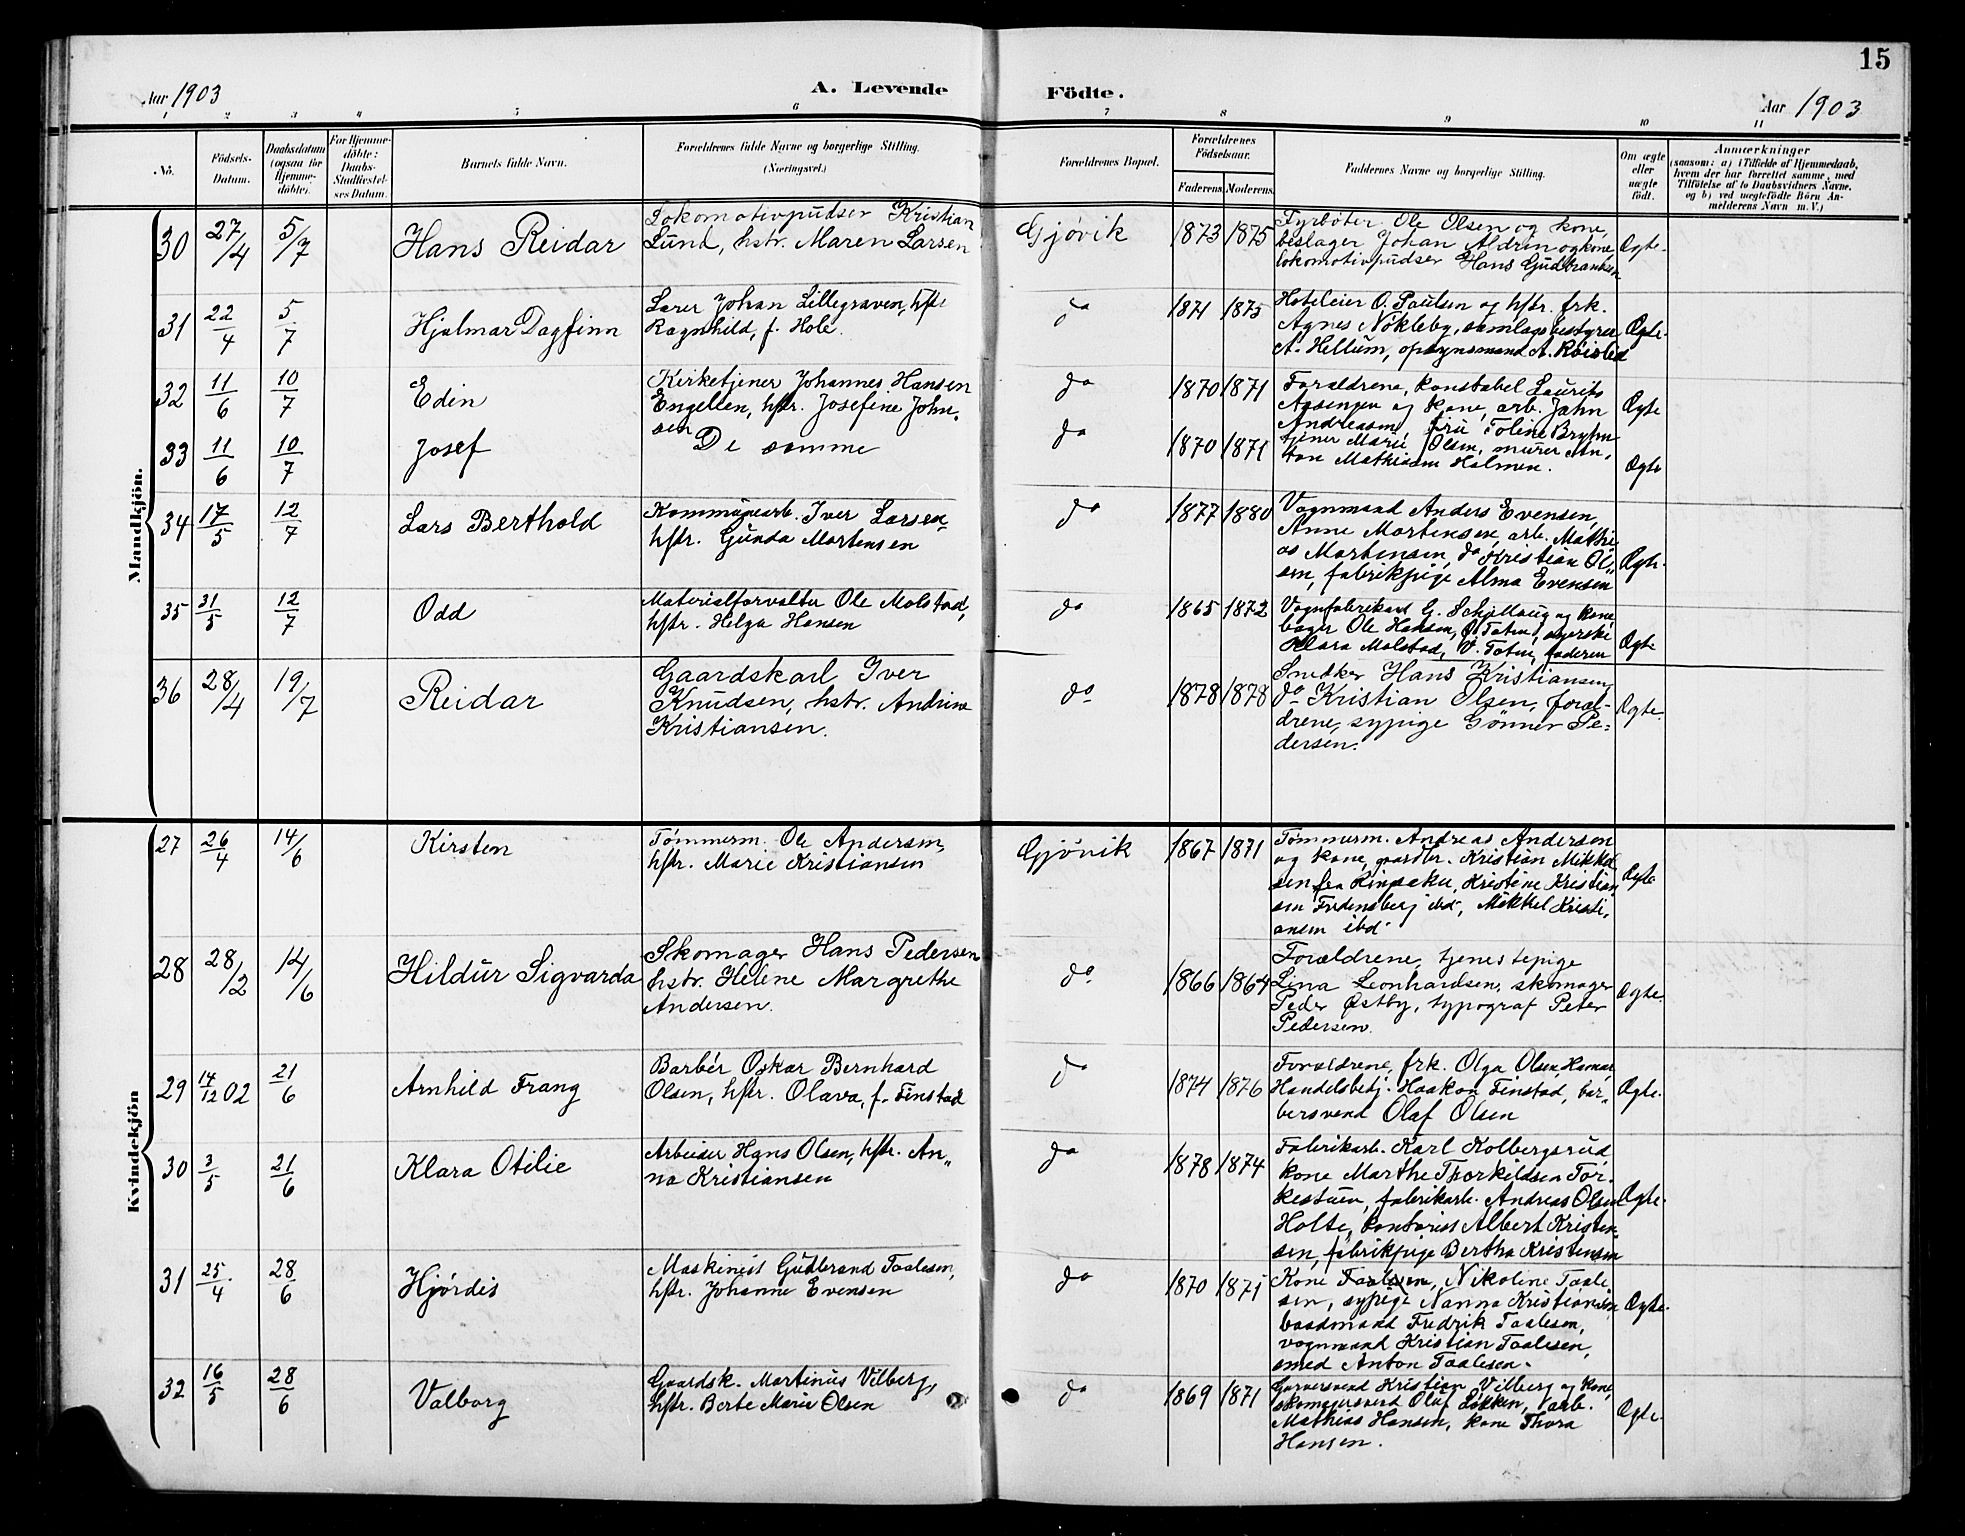 15
Aar 1903
A. Levende
Födte.
Aar 1903
1 2 3 4 5 6 7 8 9 10 11
No.
Födsels-Datum.
Daabsdatum (ogsaa for Hjemme-döbte).
For Hjemme-döbte: Daabs-Stadfæstel-ses Datum.
Barnets fulde Navn.
Forældrenes fulde Navne og borgerlige Stilling.
(Næringsvei.)
Forældrenes Bopæl.
Forældrenes Födselsaar.
Faderens Moderens
Faddernes Navne og borgerlige Stilling.
Om ægte eller uægte födt.
Anmærkninger
(saasom: a) i Tilfælde af Hjemmedaab,
hvem der har forrettet samme, med
Tilföielse af to Daabsvidners Navne.
og b) ved uægtefödte Börn An-
melderens Navn m. V.)
Mandkjön.
30 27/4 5/7 Hans Reidar
Lokomotivpudser Kristian
Lund, hstr. Maren Larsen
Gjøvik 1873 1875
Fyrbøter Ole Olsen og kone,
beslager Johan Aldrin og kone,
lokomotivpudser Hans Gudbrandsen
Ægte.
31 22/4 5/7 Hjalmar Dagfinn
Lærer Johan Lillegraven, hstr
Ragnhild, f. Hole.
do 1871 1875
Hoteleier O. Paulsen og hstr. frk.
Agnes Nøkleby, samlagsbestyrer
A. Hellum, opsynsmand A.
Ægte.
32 11/6 10/7 Edin
Kirketjener Johannes Hansen
Engelien, hstr. Josefine John-
sen
do 1870 1871
Forældrene, konstabel Laurits
og kone, arb. John
Ægte
33 11/6 10/7 Josef
De samme
do 1870 1871
Andreassen, fru Toline Bryhn
tjener Marie Olsen, murer An-
ton Mathiesen Holmen.
Ægte
34 17/5 12/7 Lars Berthold
Kommunearb. Iver Larsen,
hstr. Gunda Martensen
do 1877 1880
Vognmand Anders Evensen,
Anne Mortensen, arb. Mathi-
as Martensen, do Kristian Ol-
sen, fabrikpige Alma Evensen
Ægte.
35 31/5 12/7 Odd
Materialforvalter Ole Molstad,
hstr. Helga Hansen
do 1865 1872
Vognfabrikant G. Schjellaug og kone,
bager Ole Hansen, Ø. Toten, syerske
Klara Molstad, V. Toten, faderen
Ægte
36 28/4 19/7 Reidar
Gaardskarl Iver
Knudsen, hstr. Andrine
Kristiansen.
do 1878 1878
Snedker Hans Kristiansen,
do Kristian Olsen, foræl-
drene, sypige Gønner Pe-
dersen.
Ægte.
Kvindekjön
27 26/4 14/6 Kirsten
Tømmerm. Ole Andersen,
hstr. Marie Kristiansen
Gjøvik 1867 1871
Tømmerm. Andreas Andersen
og kone, gaardbr. Kristian Mikkel
sen fra Ringsaker, Kristine Kristian
sen Fredensberg ibd, Mikkel Kristi-
ansen ibd.
Ægte
28 28/2 14/6 Hildur Sigvarda
Skomager Hans Pedersen
hstr. Helene Margrethe
Andersen.
do. 1866 1864
Forældrene, tjenestepige
Lina Leonhardsen, skomager
Peder Østby, typograf Peter
Pedersen.
Ægte.
29 14/12 02 21/6 Arnhild Frang
Barbér Oskar Bernhard
Olsen, hstr. Olava, f. Finstad
do 1874 1876
Forældrene, frk. Olga Olsen Hamar
Handelsbetj. Haakon Finstad, bar-
bersvend Olaf Olsen
Ægte.
30 3/5 21/6 Klara Otilie
Arbeider Hans Olsen, hstr. An-
na Kristiansen
do 1878 1874
Fabrikarb. Karl Kolbergsrud
kone Marthe Thorkildsen Tor-
kestuen, fabrikarb. Andreas Olsen
Holte, kontorist Albert Kristen-
sen, fabrikpige Bertha Kristensen
Ægte.
31 25/4 28/6 Hjørdis
Maskinist Gudbrand Taalesen,
hstr. Johanne Evensen
do 1870 1871
Kone Taalesen, Nikoline Taale
sen, sypige Nanna Kristiansen,
baadmand Fredrik Taalesen,
vognmand Kristian Taalesen,
smed Anton Taalesen.
Ægte.
32 16/5 28/6 Valborg
Gaardsk. Martinus Vilberg,
hstr. Berte Marie Olsen
do 1869 1871
Garversvend Kristian Vilberg og kone,
skomagersvend Oluf Løkken, arb.
Mathias Hansen, kone Thora
Hansen.
Ægte.